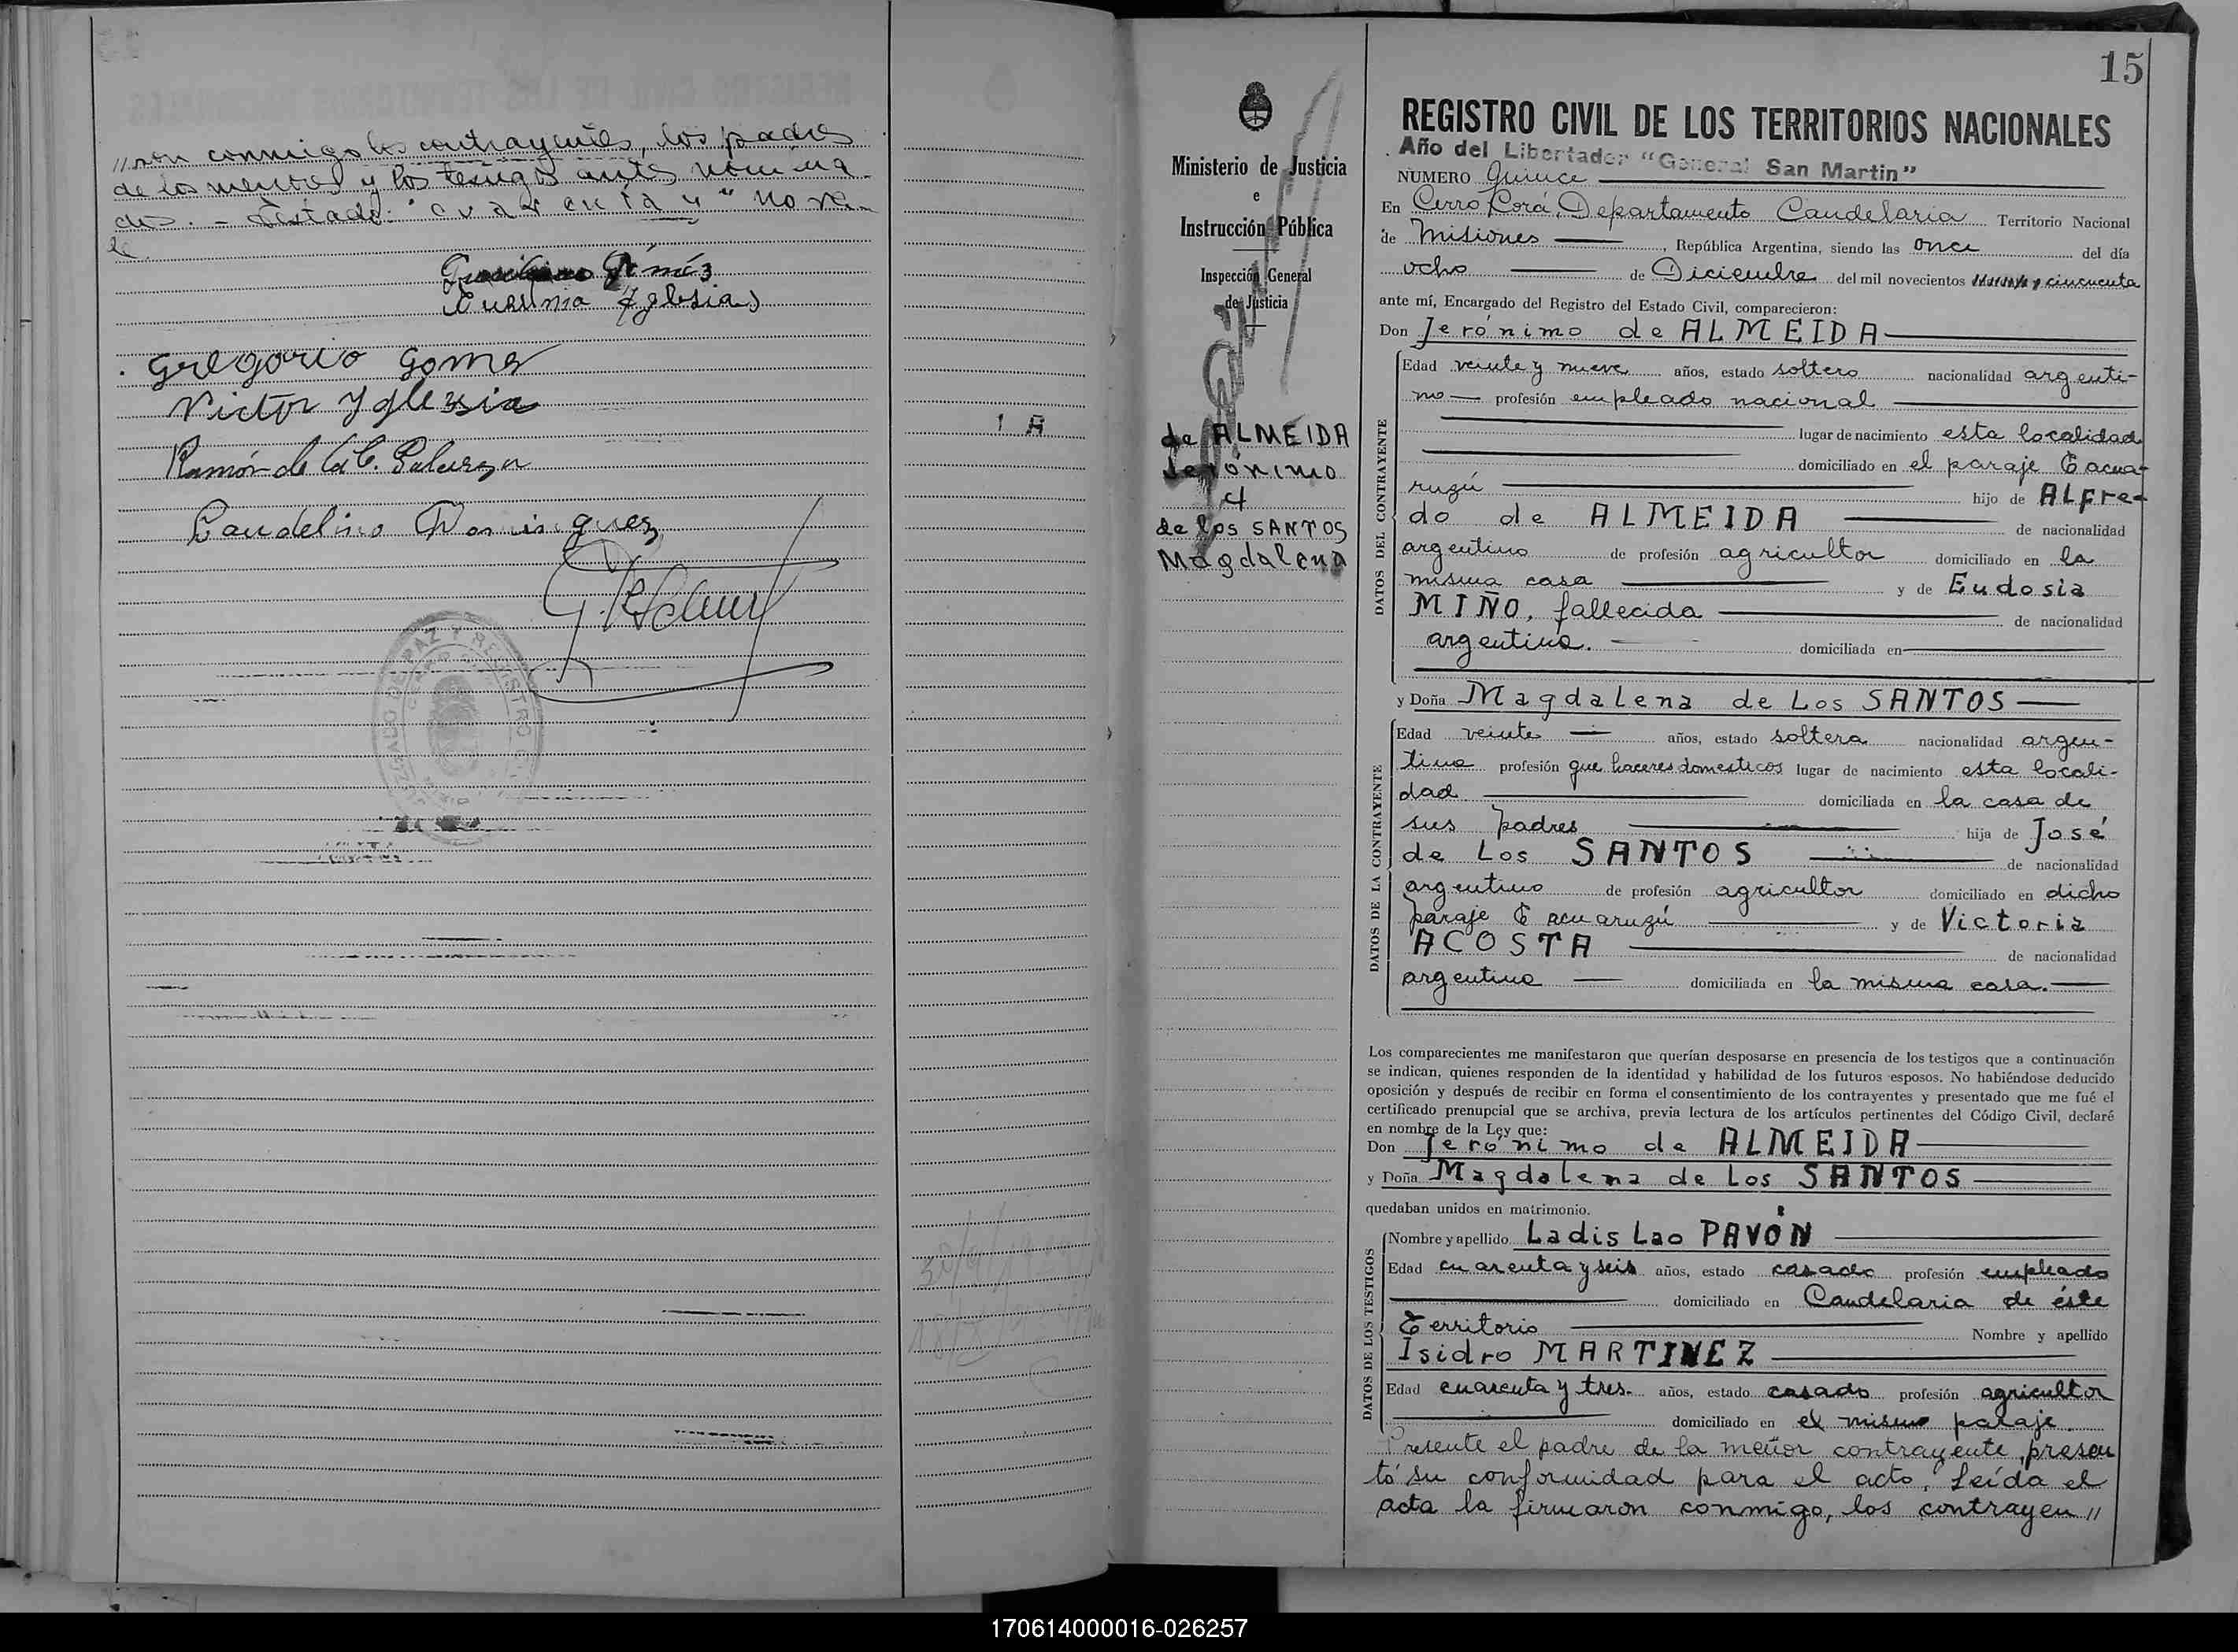 //ron conmigo los contrayentes, los padres
de los menores y los testigos antes nomina-
dos. - Testado: "cuarenta y" No va-
le.
Gimés
Eugenia Yglesias
Gregorio Gomes
Victor Yglesia
Ramón de la C.
Candelino Dominguez
1 A
15
Ministerio de Justicia
e
Instrucción Pública
Inspección General
de Justicia
de ALMEIDA
Jerónimo
y
de los SANTOS
Magdalena
REGISTRO CIVIL DE LOS TERRITORIOS NACIONALES
Año del Libertador "General San Martin"
NUMERO Quince
En Cerro Corá, Departamento Candelaria Territorio Nacional
de Misiones, República Argentina, siendo las once del día
ocho de Diciembre del mil novecientos cincuenta
ante mí, Encargado del Registro del Estado Civil, comparecieron:
Don Jerónimo de ALMEIDA
DATOS DEL CONTRAYENTE
Edad veinte y nueve años, estado soltero nacionalidad argenti-
no profesión empleado nacional
lugar de nacimiento esta localidad
domiciliado en el paraje Tacua-
rugú hijo de ALFre-
do de ALMEIDA de nacionalidad
argentino de profesión agricultor domiciliado en la
misma casa y de Eudosia
MIÑO, fallecida de nacionalidad
argentina. domiciliada en
y Doña Magdalena de Los SANTOS
DATOS DE LA CONTRAYENTE
Edad veinte años, estado soltera nacionalidad argen-
tina profesión que haceres domesticos lugar de nacimiento esta locali-
dad domiciliada en la casa de
sus padres hija de José
de Los SANTOS de nacionalidad
argentino de profesión agricultor domiciliado en dicho
paraje Tacuarugú y de Victoria
ACOSTA de nacionalidad
argentina domiciliada en la misma casa.
Los comparecientes me manifestaron que querían desposarse en presencia de los testigos que a continuación
se indican, quienes responden de la identidad y habilidad de los futuros esposos. No habiéndose deducido
oposición y después de recibir en forma el consentimiento de los contrayentes y presentado que me fué el
certificado prenupcial que se archiva, previa lectura de los artículos pertinentes del Código Civil, declaré
en nombre de la Ley que:
Don Jerónimo de ALMEIDA
y Doña Magdalena de Los SANTOS
quedaban unidos en matrimonio.
DATOS DE LOS TESTIGOS
Nombre y apellido Ladislao PAVÓN
Edad cuarenta y seis años, estado casado profesión empleado
domiciliado en Candelaria de éste
Territorio Nombre y apellido
Isidro MARTINEZ
Edad cuarenta y tres. años, estado casado profesión agricultor
domiciliado en el mismo paraje.
Presente el padre de la menor contrayente, presen
tó su conformidad para el acto. Leída el
acta la firmaron conmigo, los contrayen//
170614000016-026257